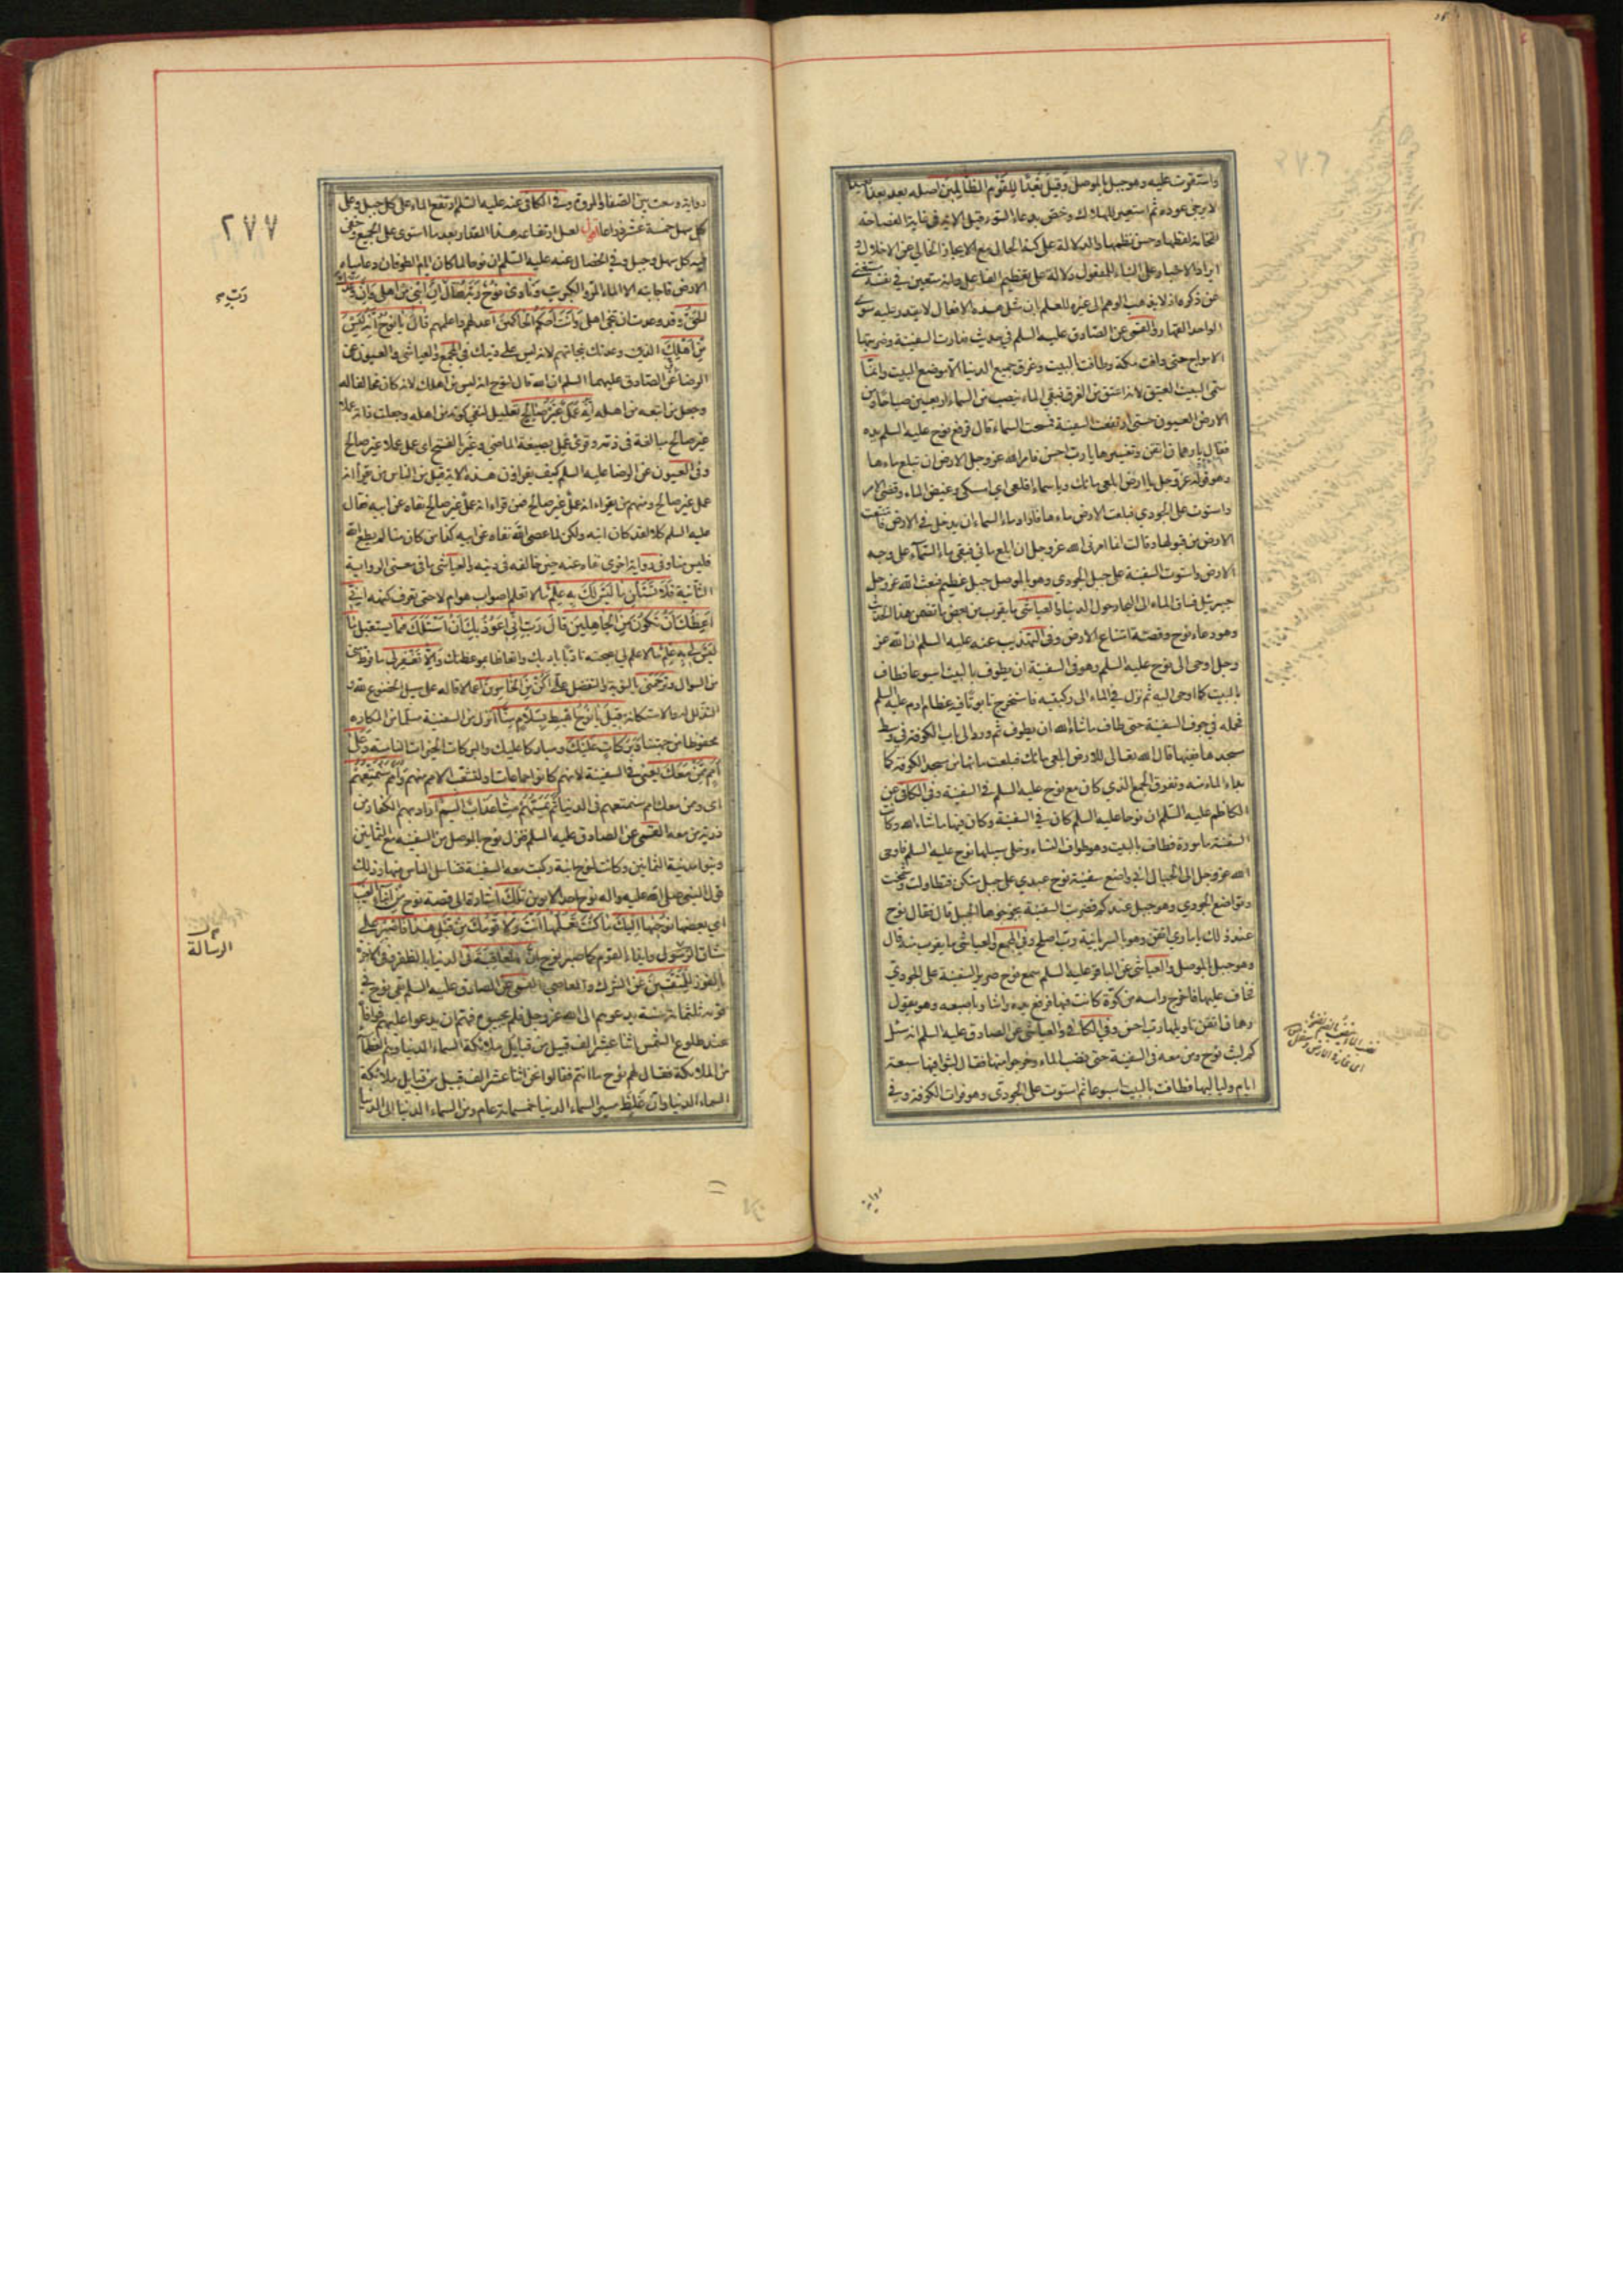 واستقرت عليه وهو جبل بالموصل وقيل بعدا للقوم الظالمين اصله بعد بعدا بعيدا
لا يرجى عوده ثم استعير للهلاك وخص بدعاء السوء قيل الاية في غاية الفصاحة
لفخامة لفظها وحسن نظمها والدلالة على كنه الحال مع الايجاز الخالي عن الاخلال و
ايراد الاخبار على البناء للمفعول دلالة على تعظيم الفاعل وانه متعين في نفسه مستغن
عن ذكره اذ لا يذهب الوهم الى غيره للعلم بان مثل هذه الافعال لا يقدر عليه سوى
الواحد القهار والقمي عن الصادق عليه السلم في حديث فدارت السفينة وضربتها
الامواج حتى وافت مكة وطافت بالبيت وغرق جميع الدنيا الا موضع البيت وانما
سمي البيت العتيق لانه اعتق من الغرق فبقي الماء ينصب من السماء اربعين صباحا ومن
الارض العيون حتى ارتفعت السفينة فمسحت السماء قال فرفع نوح عليه السلم يده
فقال يا رهمان اتقن وتفسيرها يا رب احسن فامر الله عز وجل الارض ان تبلع ماءها
وهو قوله عز وجل يا ارض ابلعي ماءك ويا سماء اقلعي اي امسكي وغيض الماء وقضي الامر
واستوت على الجودي فبلعت الارض ماءها فاراد ماء السماء ان يدخل في الارض فامتنعت
الارض من قبولها وقالت انما امرني الله عز وجل ان ابلع مائي فبقي ماء السماء على وجه
الارض واستوت السفينة على جبل الجودي وهو بالموصل جبل عظيم فبعث الله عز وجل
جبرئيل فساق الماء الى البحار حول الدنيا والعياشي ما يقرب من بعض ما تضمن هذا الحديث
وهو دعاء نوح وقصة امتناع الارض وفي التهذيب عنه عليه السلم ان الله عز
وجل اوحى الى نوح عليه السلم وهو في السفينة ان يطوف بالبيت اسبوعا فطاف
بالبيت كما اوحى اليه ثم نزل في الماء الى ركبتيه فاستخرج تابوتا فيه عظام ادم عليه السلم
فحمله في جوف السفينة حتى طاف ما شاء الله ان يطوف ثم ورد الى باب الكوفة في وسط
مسجدها ففيها قال الله تعالى للارض ابلعي ماءك فبلعت ماءها من مسجد الكوفة كما
بداء الماء منه وتفرق الجمع الذي كان مع نوح عليه السلم في السفينة وفي الكافي عن
الكاظم عليه السلم ان نوحا عليه السلم كان في السفينة وكان فيها ما شاء الله وكانت
السفينة مامورة فطاف بالبيت وهو طواف النساء وخلى سبيلها نوح عليه السلم فاوحى
الله عز وجل الى الجبال اني واضع سفينة نوح عبدي على جبل منكن فتطاولت وشمخت
وتواضع الجودي وهو جبل عندكم فضربت السفينة بجؤجؤها الجبل قال فقال نوح
عند ذلك يا ماري اتقن وهو بالسريانية رب اصلح وفي المجمع والعياشي ما يقرب منه قال
وهو جبل بالموصل والعياشي عن الباقر عليه السلم سمع نوح صرير السفينة على الجودي
فخاف عليها فاخرج راسه من كوة كانت فيها فرفع يده واشار باصبعه وهو يقول
رهمان اتقن تاويلها رب احسن وفي الكافي والعياشي عن الصادق عليه السلم انه سئل
كم لبث نوح ومن معه في السفينة حتى نضب الماء وخرجوا منها فقال لبثوا فيها سبعة
ايام ولياليها فطافت بالبيت اسبوعا ثم استوت على الجودي وهو فرات الكوفة وفي
رواية
٢٧٧
رواية وسعت بين الصفا والمروة وفي الكافي عنه عليه السلم ارتفع الماء على كل جبل وعلى
كل سهل خمسة عشر ذراعا اقول لعل ارتفاعه هذا المقدار بعد ما استوى على الجميع وخفي
فيه كل سهل وجبل وفي الخصال عنه عليه السلم ان نوحا لما كان ايام الطوفان دعا مياه
الارض فاجابته الا الماء المر والكبريت ونادى نوح ربه فقال ان ابني من اهلي وان وعدك
الحق وقد وعدت ان تنجي اهلي وانت احكم الحاكمين اعدلهم واعلمهم قال يا نوح انه ليس
من اهلك الذين وعدتك بنجاتهم لانه ليس على دينك في المجمع والعياشي والعيون عن
الرضا عن الصادق عليهما السلم ان الله قال لنوح انه ليس من اهلك لانه كان مخالفا له
وجعل من اتبعه من اهله انه عمل غير صالح تعليل لنفي كونه من اهله وجعلت ذاته عملا
غير صالح مبالغة في ذمه وقرئ عمل بصيغة الماضي وغير بالفتح اي عمل عملا غير صالح
وفي العيون عن الرضا عليه السلم كيف يقراون هذه الاية قيل من الناس من يقرأ انه
عمل غير صالح ومنهم من يقراء انه عمل غير صالح فمن قراء انه عمل غير صالح نفاه عن ابيه فقال
عليه السلم كلا لقد كان ابنه ولكن لما عصى الله نفاه عن ابيه كذا من كان منا لم يطع الله
فليس منا وفي رواية اخرى نفاه عنه حين خالفه في دينه والعياشي ما في معنى الرواية
الثانية فلا تسئلن ما ليس لك به علم ما لا تعلم اصواب هو ام لا حتى تعرف كنهه اني
اعظك ان تكون من الجاهلين قال رب اني اعوذ بك ان اسئلك فيما يستقبل ما
ليس لي به علم ما لا علم لي بصحته تادبا بادبك واتعاظا بموعظتك والا تغفر لي ما فرط مني
من السوال وترحمني بالتوبة والتفضل علي اكن من الخاسرين اعمالا قاله على سبيل الخضوع لله و
التذلل له والاستكانة قيل يا نوح اهبط بسلام منا انزل من السفينة مسلما من المكاره
محفوظا من جهتنا وبركات عليك ومباركا عليك والبركات الخيرات النامية وعلى
امم ممن معك يعني في السفينة لانهم كانوا جماعات او لتشعب الامم منهم وامم سنمتعهم
اي وممن معك امم سنمتعهم في الدنيا ثم يمسهم منا عذاب اليم اراد بهم الكفار من
ذرية من معه القمي عن الصادق عليه السلم فنزل نوح بالموصل من السفينة مع الثمانين
وبنوا مدينة الثمانين وكانت لنوح ابنة ركبت معه السفينة فتناسل الناس منها وذلك
قول النبي صلى الله عليه واله نوح احد الابوين تلك اشارة الى قصة نوح من انباء الغيب
اي بعضها نوحيها اليك ما كنت تعلمها انت ولا قومك من قبل هذا فاصبر على
مشاق الرسالة وايذاء القوم كما صبر نوح ان العاقبة في الدنيا بالظفر وفي الاخرة
بالفوز للمتقين عن الشرك والمعاصي القمي عن الصادق عليه السلم بقي نوح في
قومه ثلثمائة سنة يدعوهم الى الله عز وجل فلم يجيبوه فهم ان يدعوا عليهم فوافاه
عند طلوع الشمس اثنا عشر الف قبيل من قبايل ملائكة السماء الدنيا وهم العظماء
من الملائكة فقال لهم نوح ما انتم فقالوا نحن اثنا عشر الف قبيل من قبايل ملائكة
السماء الدنيا وان غلظ مسير السماء الدنيا خمسمائة عام ومن السماء الدنيا الى الدنيا
الرسالة